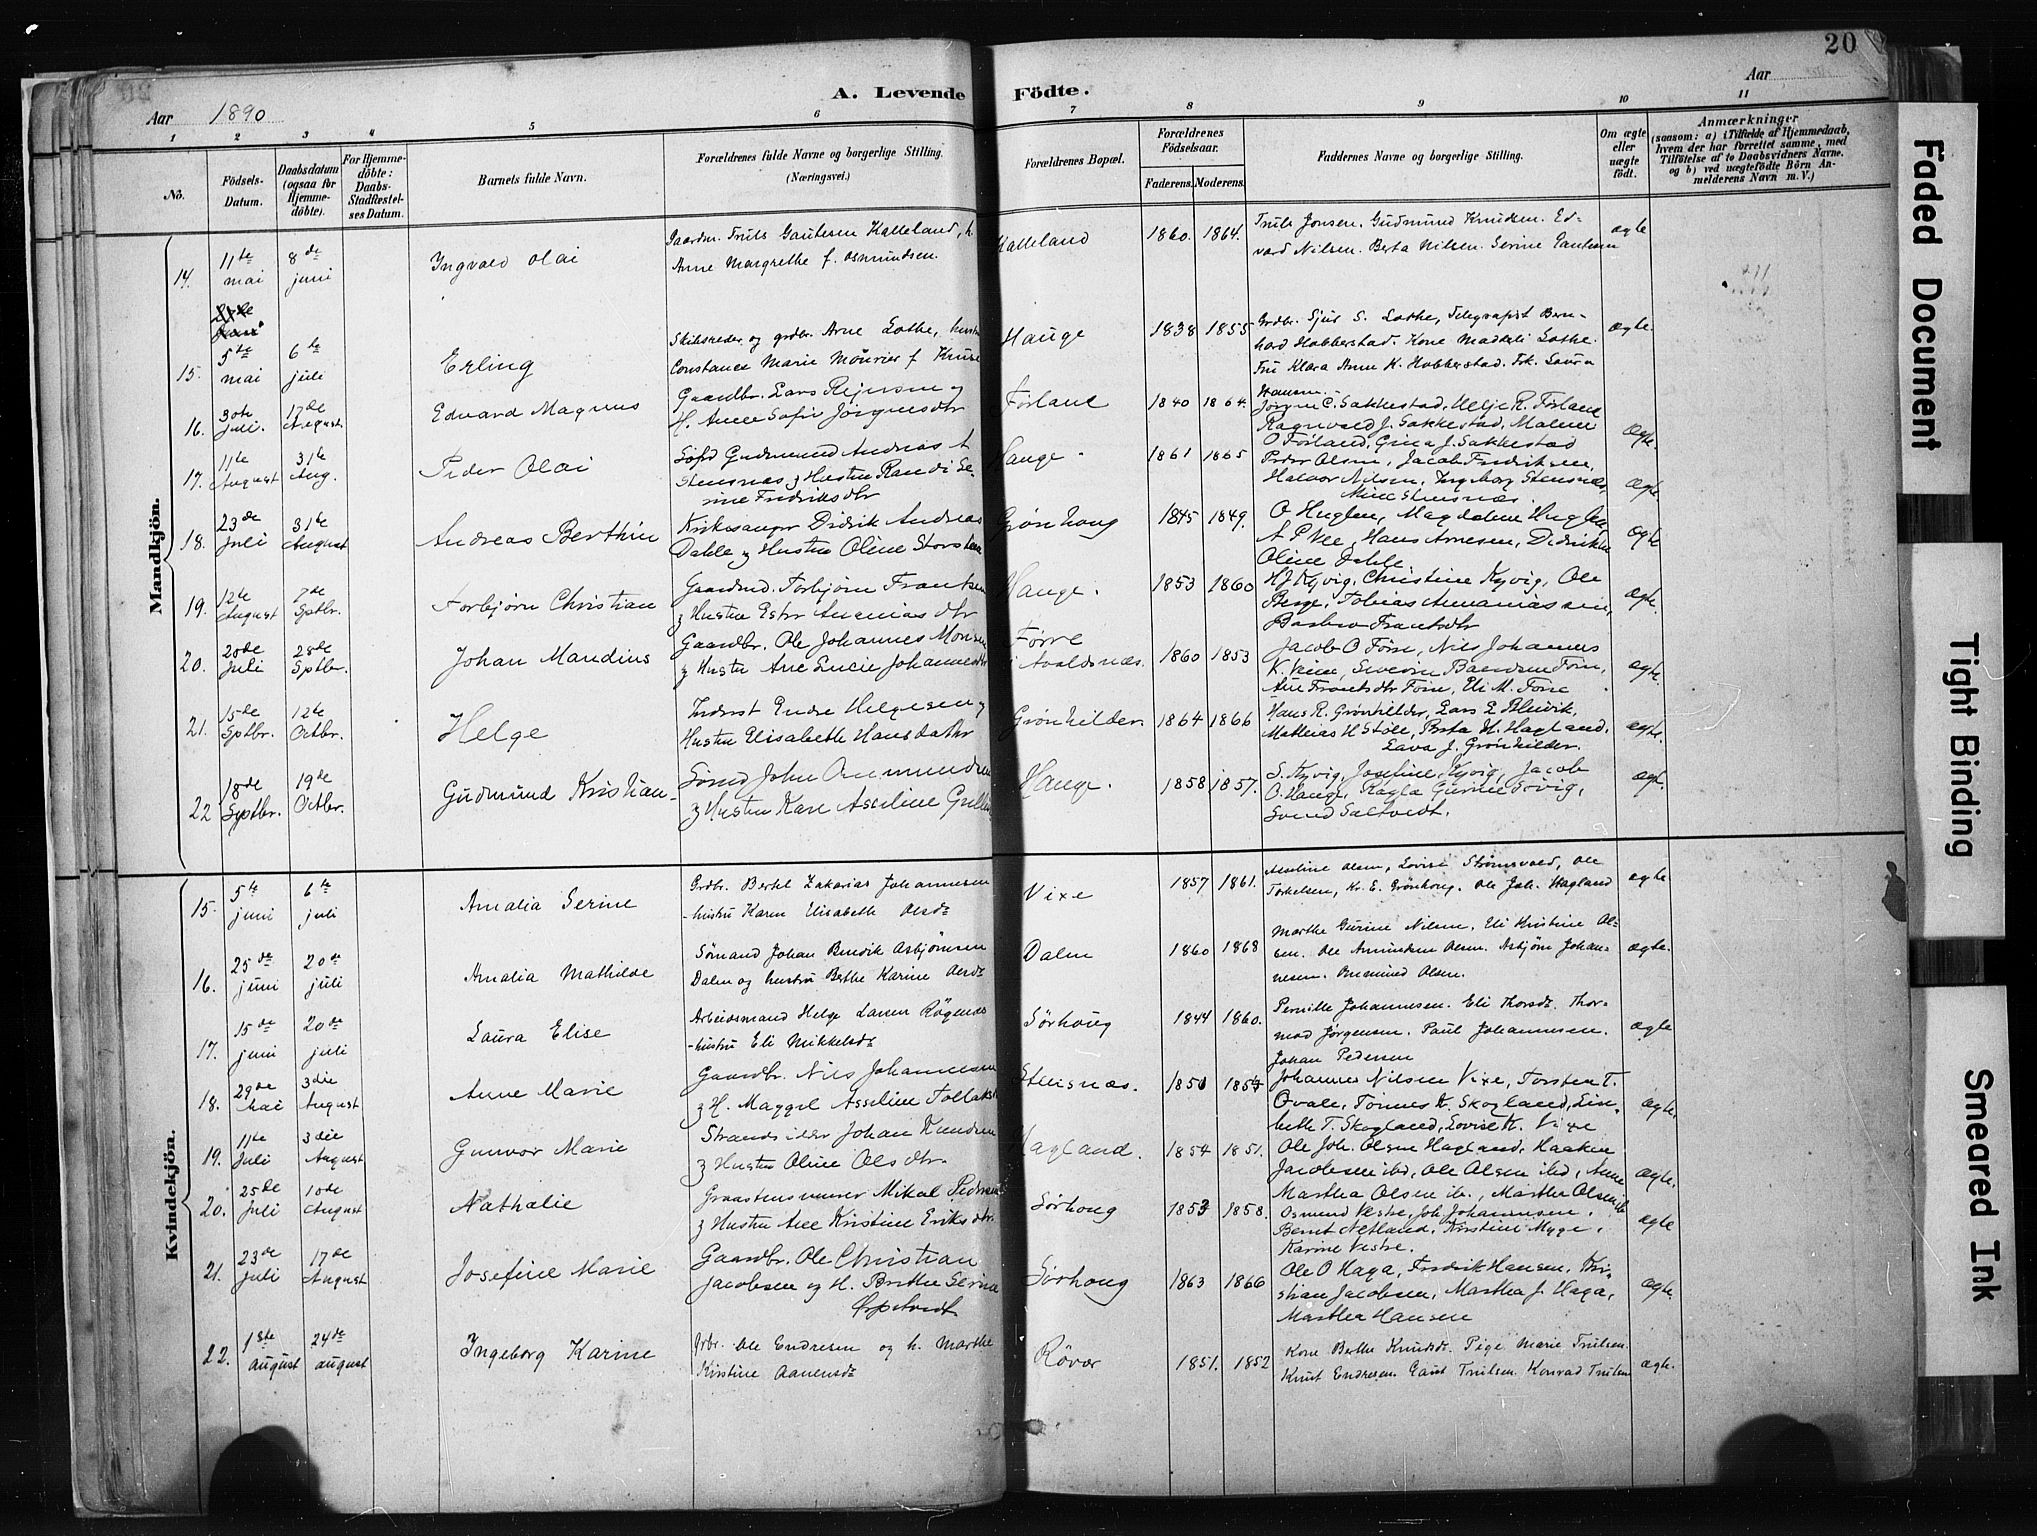 20
Aar 1890
A. Levende Födte.
Aar
1 2 3 4 5 6 7 8 9 10 11
No.
Födsels-
Datum.
Daabsdatum
(ogsaa for
Hjemme-
döbte).
For Hjemme-
döbte:
Daabs-
Stadfæstel-
ses Datum.
Barnets fulde Navn.
Forældrenes fulde Navne og borgerlige Stilling.
(Næringsvei.)
Forældrenes Bopæl.
Forældrenes
Födselsaar.
Faderens. Moderens.
Faddernes Navne og borgerlige Stilling.
Om ægte
eller
uægte
födt.
Anmærkninger
(saasom: a) i Tilfælde af Hjemmedaab,
hvem der har forrettet samme, med
Tilföielse af to Daabsvidners Navne,
og b) ved uægtefödte Börn An-
melderens Navn m. V.)
Mandkjön.
14. 11te mai 8de juni Ingvald Olai
Gaardm. Truls Gautesen Kalleland, h.
Anne Margrethe f. Osmundsen.
Kalleland 1860. 1864.
Truls Jonsen. Gudmund Knudsen. Ed-
vard Nilsen. Berta Nilsen. Serine Gautesen
ægte
15. 5te mai 6te juli Erling
Skibsreder og grdbr. Arne Lothe, hustru
Constance Marie Mourier f. Kruse
Hauge 1838 1855
Grdbr. Sjur S. Lothe, Telegrafist Bern-
hard Hobberstad. Kone Mathili Lothe.
Fru Klara Anne K. Hobberstad. Frk. Laura
Hansen.
ægte.
16. 30te juli. 17de August. Edvard Magnus
Gaardbr. Lars Rejersen og
H. Anne Sofie Jørgensdtr
Førland 1840 1864.
Jørgen C. Sakkestad, Helje R. Førland
Ragnvald J. Sakkestad, Malene
O Førland, Gina J. Sakkestad
Ægte.
17. 11te August 31te Aug. Peder Olai
Søfd Gudmund Andreas A
Stensnæs & Hustru Randi Se-
rine Fredriksdtr
Hauge. 1861 1865
Peder Olsen, Jacob Fredriksen,
Halvor Nilsen, Ingeborg Stensnæs,
Mine Stensnæs.
Ægte.
18. 23de Juli 31te August Andreas Berthin
Kirkesanger Didrik Andreas
Dahle & Hustru Oline Storsteen
Grønhoug 1845 1849.
O Huglen, Magdalene Huglen,
A P Vee, Hans Arnesen, Didrikke
Oline Dahle.
Ægte
19. 12te August 7de Sptbr. Torbjørn Christian
Gaardmd. Torbjørn Frantsen
& Hustru Ester Ananias dtr
Hauge. 1853 1860
H J Kyvig, Christine Kyvig, Ole
Berge, Tobias Annaniassen,
Barbro Frantsdtr
Ægte.
20. 20de Juli 28de Sptbr. Johan Mandius
Gaardbr. Ole Johannes Monsen
& Hustru Ane Lucie Johannesdtr
Førre i Avaldsnæs. 1860 1853
Jacob O Førre, Nils Johannes
Sivert Baardsen Førre,
Ane Frantsdtr Førre, Eli M. Førre
ægte.
21. 15de Sptbr. 12te Octbr. Helge
Inderst Endre Helgesen og
Hustru Elisabeth Hansdatter
Grønhilder. 1864 1866
Hans R. Grønhilder, Lars L Bleivik,
Mathias H Støle, Berta H. Hagland.
Lava J. Grønhilder.
Ægte.
22 18de Septbr. 19de Octbr. Gudmund Kristian
Sømd John Omundsen
& Hustru Kari Asseline Gullu
Hauge. 1858 1857.
S. Kyvig, Josefine Kyvig, Jacob
O. Hauge, Ragla Gurine Sivig,
Svend Saltvedt.
Ægt.
Kvindekjön.
15. 5te juni 6te juli Amalia Serine
Grdbr. Bertel Zakarias Johannesen
hustru Karen Elisabeth Olsdr
Vixe 1857 1861.
Asseline Olsen, Lovise Strømsvold, Ole
Torkelsen, Kr. E. Grönhoug. Ole Joh. Hagland
ægte
16. 25de juni 20de juli Amalia Mathilde
Sömand Johan Bendik Asbjörnsen
Dalen og hustru Berthe Karine Olsdr
Dalen 1860 1868
Marthe Gurine Nilsen. Eli Kristine Ol-
sen. Ole Amundsen Olsen. Asbjörn Johan-
nesen. Omund Olsen.
ægte.
17. 15de juni 20de juli Laura Elise
Arbeidsmand Helge Larsen Rögenes
hustru Eli Mikkelsdr
Sörhoug 1844 1860.
Pernille Johannesen. Eli Thorsdr. Thor-
mod Jörgensen. Paul Johannesen.
Johan Pedersen
ægte
18. 29de Mai 3die August Anne Marie
Gaardbr. Nils Johannesen
& H. Maggel Asseline Tollaks
Stensnæs. 1850 1857
Johannes Nilsen Vixe, Torsten T.
Ovale, Tønnes K. Skogland, Lin-
beth T. Skogland, Lovise K. Vixe
Ægte.
19. 11te Juli 3die August Gunvor Marie
Strandsidder Johan Knudsen
& Hustru Oline Olsdtr.
Hagland. 1854 1851.
Ole Joh. Olsen Hagland, Haaken
Jacobsen ibd, Ole Olsen ibd, Anne
Martha Olsen ib., Martha Olsen ib
Ægte.
20. 25de Juli 10de August Nathalie
Graastensmurer Mikal Pedersen
& Hustru Ane Kristine Eriksdtr.
Sørhoug 1852 1858.
Osmund Vestre, Joh Johannesen,
Bernt Netland, Kristine Myge,
Karine Vestre.
Ægte
21. 23de Juli 17de August Josefine Marie
Gaardbr. Ole Christian
Jacobsen og H. Brithe Serine
Espetvedt
Sørhoug 1863 1866
Ole O Haga, Fredrik Hansen, Kri-
stian Jacobsen, Martha J. Haga,
Martha Hansen
Ægte.
22. 1ste august 24de august Ingeborg Karine
Grbr. Ole Endresen og h. Marthe
Kristine Aanensdr
Rövær 1851. 1852
Kone Berthe Knudsdr. Pige Marie Trulsen.
Knut Endresen. Gaut Trulsen. Konrad Trulsen
ægte.
Faded Document
Tight Binding
Smeared Ink